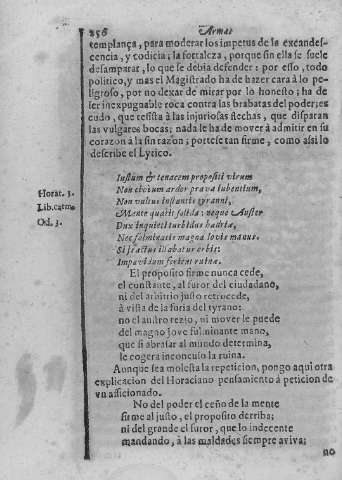 256 Armas
templança, para moderar los impetus de la excandes-
cencia, y codicia; la fortaleza, porque sin ella se suele
desamparar, lo que se debia defender: por esso, todo
politico, y mas el Magistrado ha de hazer cara à lo pe-
ligroso, por no dexar de mirar por lo honesto; ha de
ser inexpugnable roca contra las brabatas del poder; es
cudo, que resista à las injuriosas flechas, que disparan
las vulgares bocas; nada le ha de mover à admitir en su
corazon à la sin razon; portese tan firme, como assi lo
describe el Lyrico.
Horat. 3.
Lib. carm.
Od. 3.
Iustum & tenacem propositi virum
Non civium ardor prava iubentium,
Non vultus instantis tyranni,
Mente quatit solida: neque Auster
Dux inquieti turbidus hadriæ,
Nec fulminatis magna Iovis manus.
Si fractus illabatur orbis:
Impavidum ferient ruinæ.
El proposito firme nunca cede,
el constante, al furor del ciudadano,
ni del arbitrio justo retrocede,
à vista de la furia del tyrano:
no el austro rezio, ni mover le puede
del magno Jove fulminante mano,
que si abrasar al mundo determina,
le cogera inconcuso la ruina.
Aunque sea molesta la repeticion, pongo aqui otra
explicacion del Horaciano pensamiento à peticion de
vn aficionado.
No del poder el ceño de la mente
firme al justo, el proposito derriba;
ni del grande el furor, que lo indecente
mandando, à las maldades siempre aviva;
no